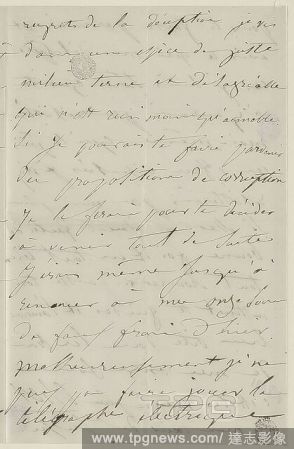 regrets de la déception je vis
dans une espèce de juste
milieu terne et désagréable
qui n'est rien moins qu'aimable
Si je pouvais te faire parvenir
des propositions de corruption
je le ferais pour te décider
à venir tout de suite
J'irais même jusqu'à
renoncer à mes onze sous
de faux frais d'hier
malheureusement je ne
puis faire jouer le
télégraphe électrique
www.tpgnews.com / 達志影像